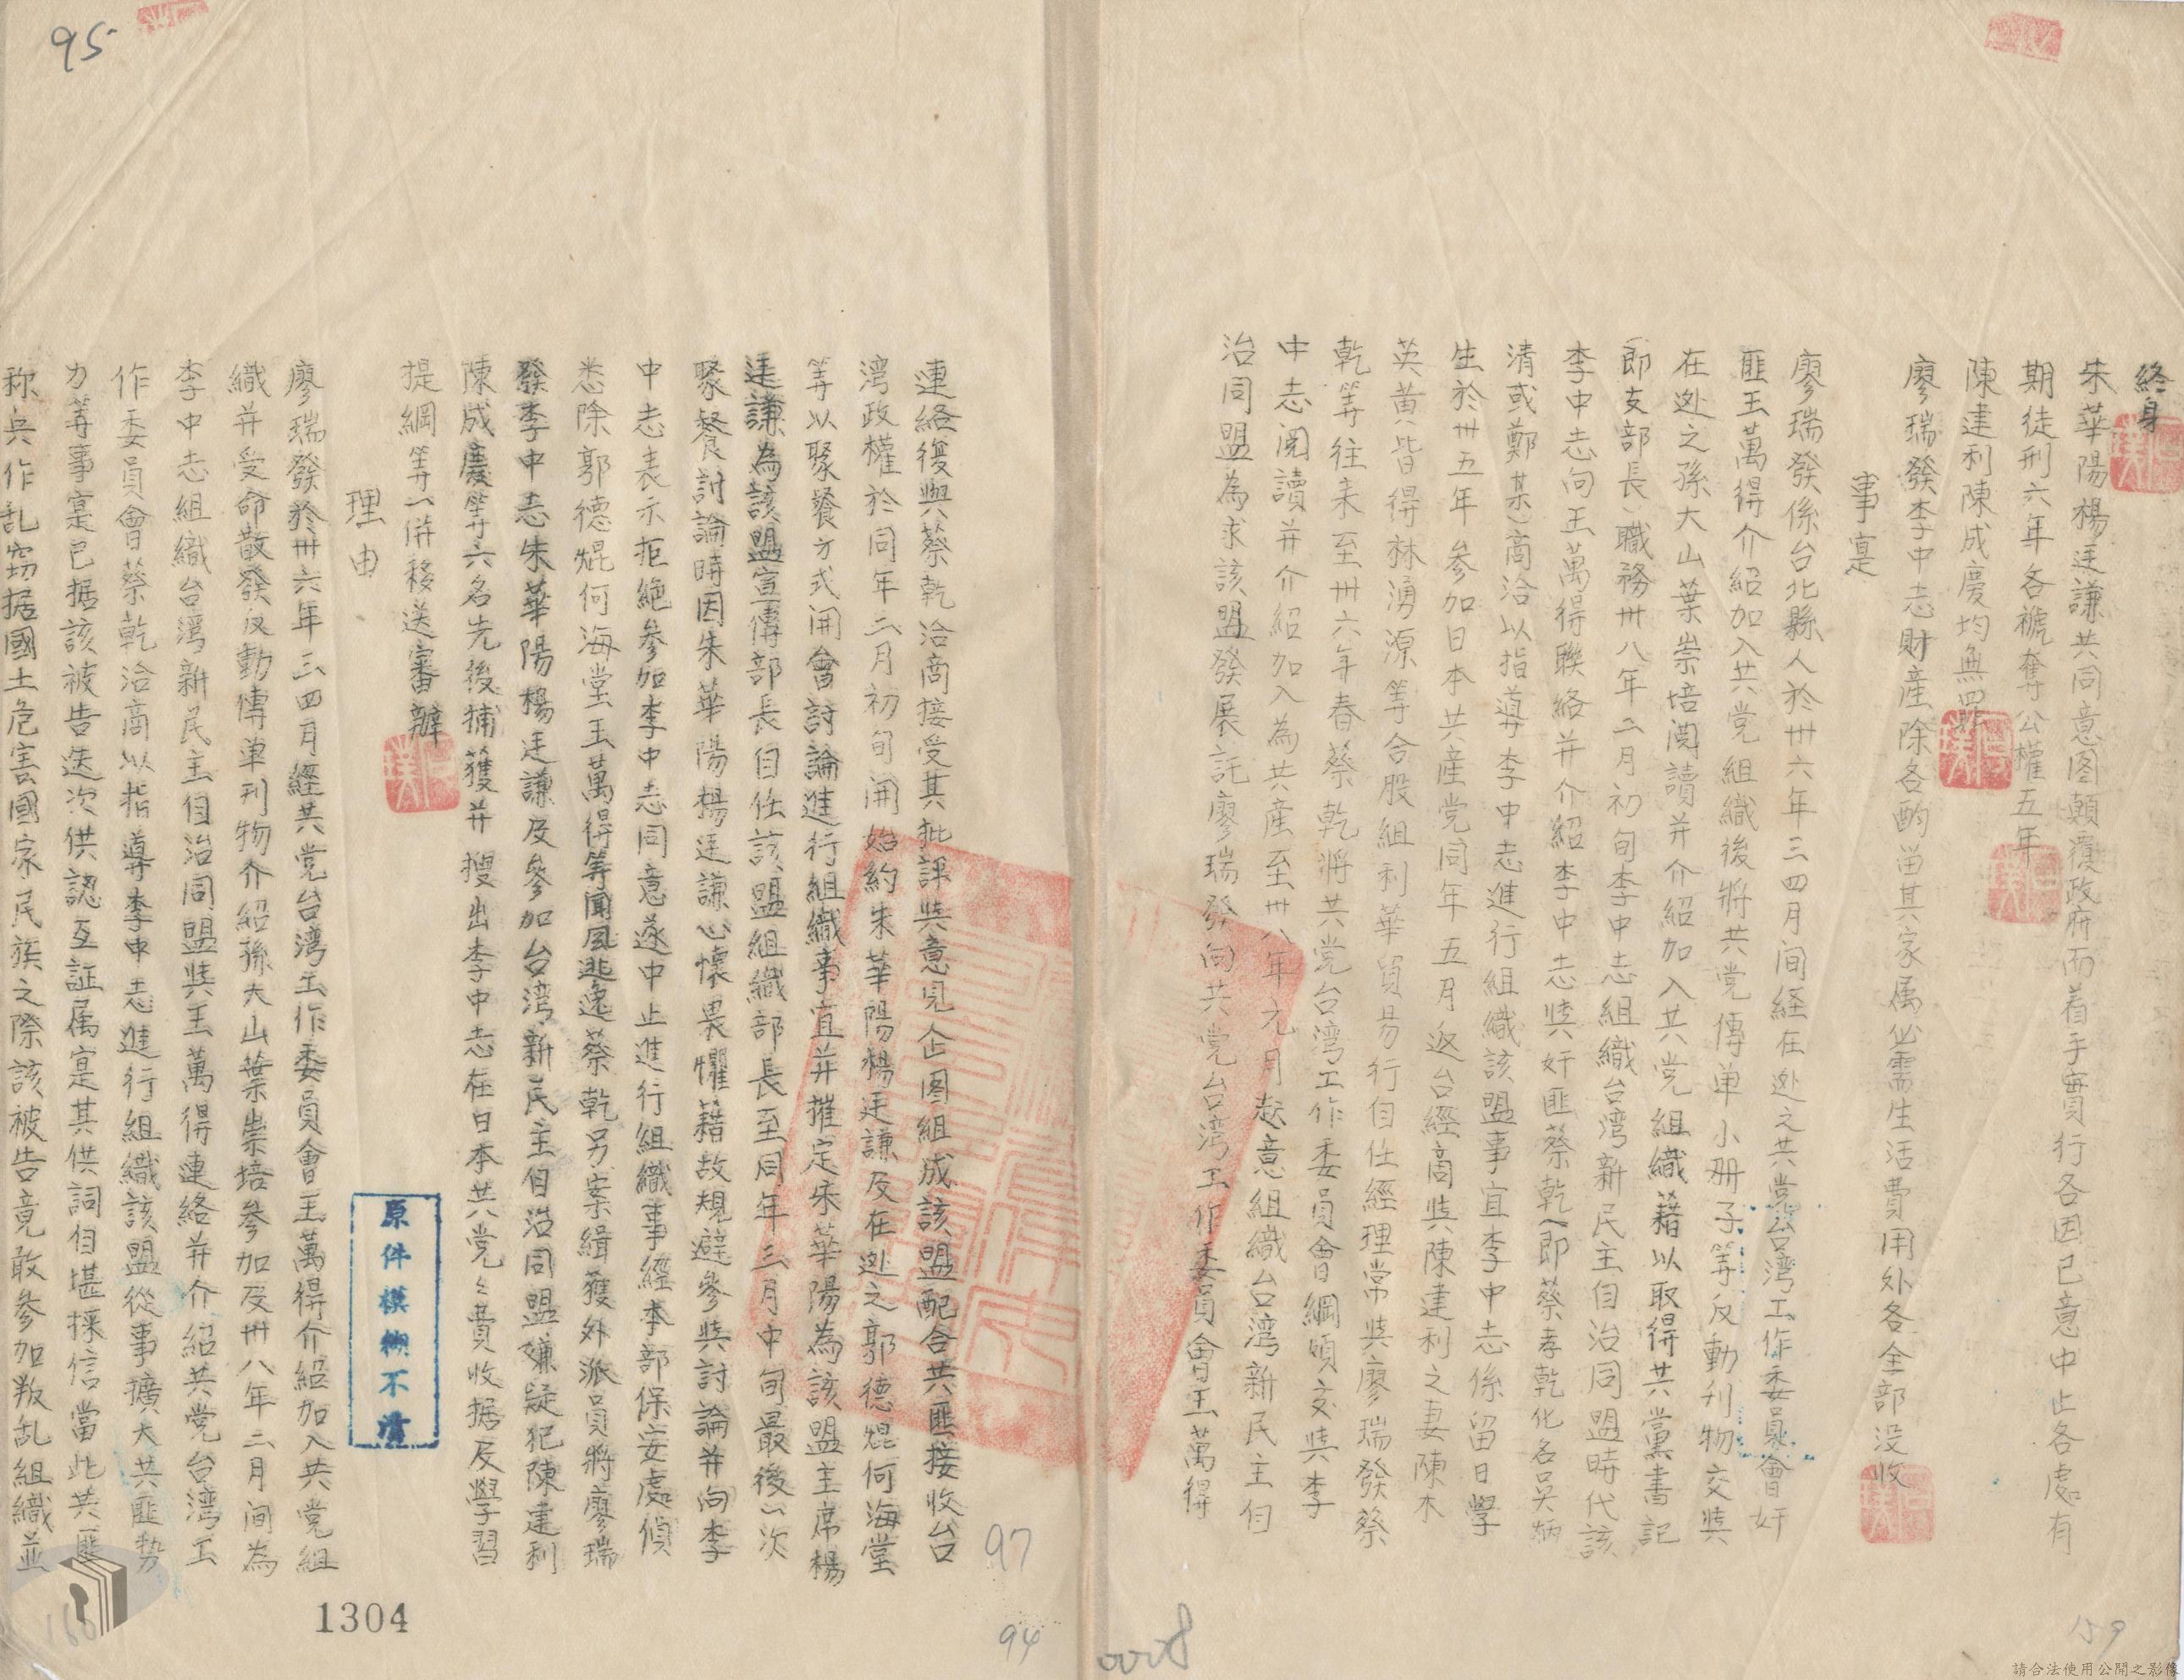 終身
朱華陽楊廷謙共同意图顛覆政府而着手實行各因已意中止各處有
期徒刑六年各褫奪公權五年
陳建利陳成慶均無罪
廖瑞發李中志財産除各酌留其家属必需生活費用外各全部没收
事寔
廖瑞發係台北縣人於卅六年三四月间経在逃之共党台湾工作委員會奸
匪王萬得介紹加入共党組織後將共党傳单小册子等反動刋物交與
在逃之孫大山葉崇培阅讀并介紹加入共党組織藉以取得共黨書記
(即支部長)職務卅八年二月初旬李中志組織台湾新民主自治同盟時代該
李中志向王萬得聯絡并介紹李中志與奸匪蔡乾(即蔡孝乾化名吴炳
清或鄭某)商洽以指導李中志進行組織該盟事宜李中志係留日學
生於卅五年參加日本共産党同年五月返台經商與陳建利之妻陳木
英黄八皆得林湧源等合股組利華貿易行自任經理常與廖瑞發蔡
乾等往来至卅六年春蔡乾將共党台湾工作委員會綱領交與李
中志阅讀并介紹加入為共産至卅八年元月起意組織台湾新民主自
治同盟為求該盟發展託廖瑞發向共党台湾工作委員會王萬得
連絡復與蔡乾洽商接受其批評與意見企图組成該盟配合共匪接收台
湾政權於同年二月初旬開始約朱華陽楊廷謙及在逃之郭德焜何海堂
等以聚餐方式開會討論進行組織事宜并推定朱華陽為該盟主席楊
廷謙為該盟宣傳部長自任該盟組織部長至同年三月中旬最後一次
聚餐討論時因朱華陽楊廷謙心懷畏懼藉故規避參與討論并向李
中志表示拒絶參加李中志同意遂中止進行組織事經本部保安處偵
悉除郭德焜何海堂王萬得等聞風逃逸蔡乾另案緝獲外派員將廖瑞
發李中志朱華陽楊廷謙及參加台湾新民主自治同盟嫌疑犯陳建利
陳成慶等六名先後捕獲并搜出李中志在日本共党々費收据及學習
提綱等一併移送審辦
理由
廖瑞發於卅六年三四月經共党台湾工作委員會王萬得介紹加入共党組
織并受命散發反動傳单刋物介紹孫大山葉崇培參加及卅八年二月间為
李中志組織台湾新民主自治同盟與王萬得連絡并介紹共党台湾工
作委員會蔡乾洽商以指導李中志進行組織該盟從事擴大共匪勢
力等事寔已据該被告迭次供認互証属寔其供詞自堪採信當此共匪
称兵作乱窃据國土危害國家民族之際該被告竟敢參加叛乱組織並
原件模糊不清
95
97
94
0008
159
160
1304
請合法使用公開之影像